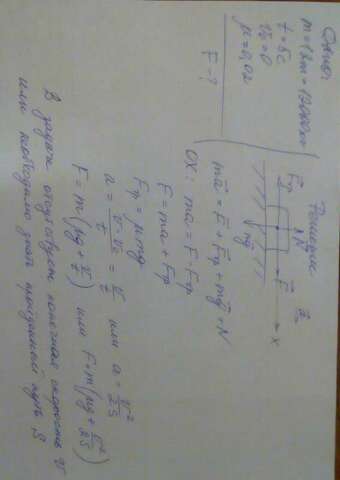 Дано:
m=12т=12000кг
t=5с
V₀=0
μ=0,02
F-?
Решение
N
Fтр
F
a
x
mg
ma = F + Fтр + mg + N
OX: ma = F - Fтр
F = ma + Fтр
Fтр = μmg
a = (V-V₀)/t = V/t или a = V²/2S
F = m(μg + V/t) или F = m(μg + V²/2S)
В задаче отсутствует конечная скорость V
или необходимо знать пройденный путь S